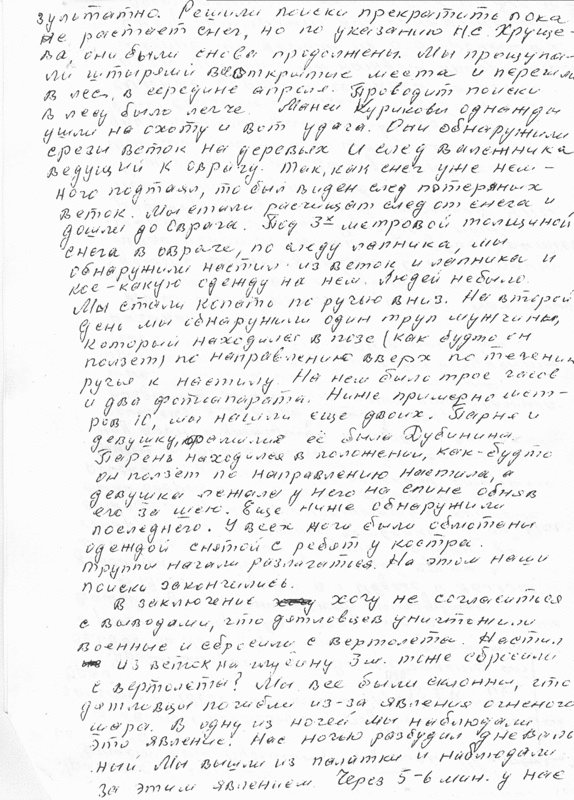 зультатно. Решили поиски прекратить пока
не растает снег, но по указанию Н.С. Хруще-
ва они были снова продолжены. Мы прощупа-
ли штырями все открытие места и перешли
в лес, в середине апреля. Проводит поиски
в лесу было легче. Манси Куриковы однажды
ушли на охоту и вот удача. Они обнаружили
срези веток на деревьях и след валежника
ведущий к оврагу. Так, как снег уже нем-
ного подтаял, то был виден след потеряных
веток. Мы стали расчищат след от снега и
дошли до оврага. Под 3х метровой толщиной
снега в овраге, по следу лапника, мы
обнаружили настил из веток и лапника и
кое-какую одежду на нем. Людей небыло.
Мы стали копать по ручью вниз. На второй
день мы обнаружили один труп мужчины,
который находился в позе (как будто он
ползет) по направлению вверх по течению
ручья к настилу. На нем было трое часов
и два фотоапарата. Ниже примерно мет-
ров 10, мы нашли еще двоих. Парня и
девушку, фамилия её была Дубинина.
Парень находился в положении, как-будто
он ползет по направлению настила, а
девушка лежала у него на спине обняв
его за шею. Еще ниже обнаружили
последнего. У всех ноги были обмотаны
одеждой снятой с ребят у костра.
Трупы начали разлагаться. На этом наши
поиски закончились.
В заключение хочу не согласиться
с выводами, что дятловцев уничтожили
военные и сбросили с вертолета. Настил
из веток на глубину 3м. тоже сбросили
с вертолета? Мы все были склонны, что
дятловци погибли из-за явления огненого
шара. В одну из ночей мы наблюдали
это явление. Нас ночью разбудил дневаль-
ный. Мы вышли из палатки и наблюдали
за этим явлением. Через 5-6 мин. у нас